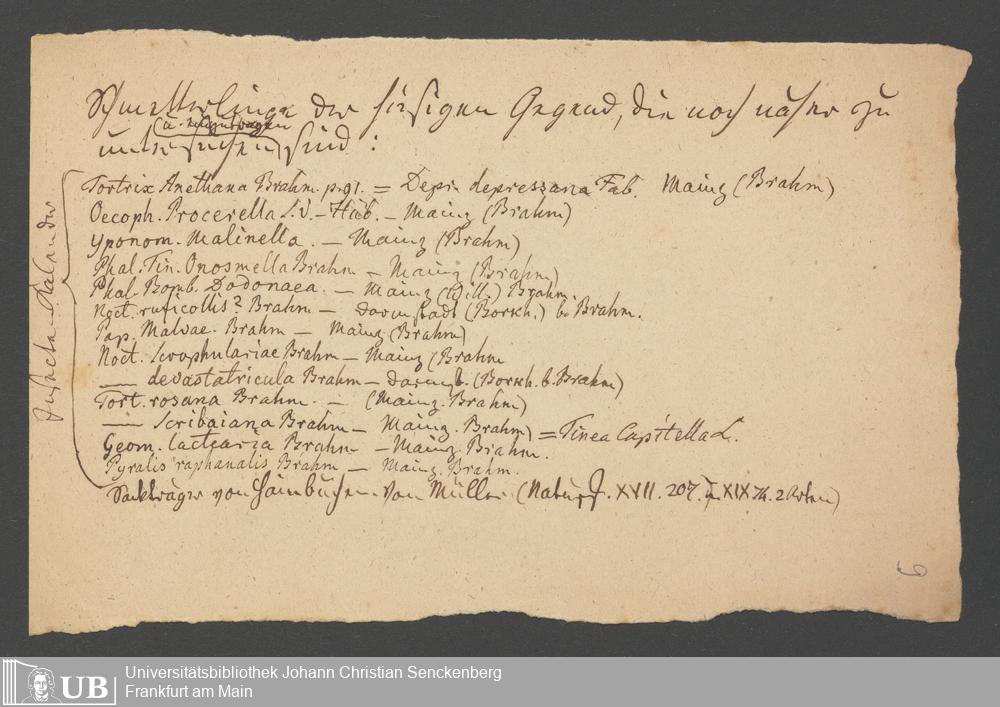 Schmetterlinge der hiesigen Gegend, die noch näher zu
(u. einzutragen)
untersuchen sind:
Insecten Kalender
Tortrix Anethana Brahm. p. 91. = Depr. depressana Fab. Mainz (Brahm)
Oecoph. Procerella S.V. - Hüb. - Mainz (Brahm)
Yponom. Malinella. - Mainz (Brahm)
Phal. Tin. Onosmella Brahm - Mainz (Brahm)
Phal. Bomb. Dodonaea. - Mainz (Vill.) Brahm
Noct. ruficollis? Brahm - Darmstadt (Borkh.) b. Brahm.
Pap. Malvae. Brahm - Mainz (Brahm)
Noct. Scrophulariae Brahm - Mainz (Brahm
— devastatricula Brahm - Darmst. (Borkh. b. Brahm)
Tort. rosana Brahm. - (Mainz. Brahm)
— Scribaiana Brahm - Mainz. Brahm) = Tinea Capitella L.
Geom. lactearia Brahm - Mainz Brahm.
Pyralis raphanalis Brahm - Mainz. Brahm.
Sackträger von Hainbuchen von Müller (Naturf. XVII. 207. XIX 74. 2 Arten)
6
UB
Universitätsbibliothek Johann Christian Senckenberg
Frankfurt am Main